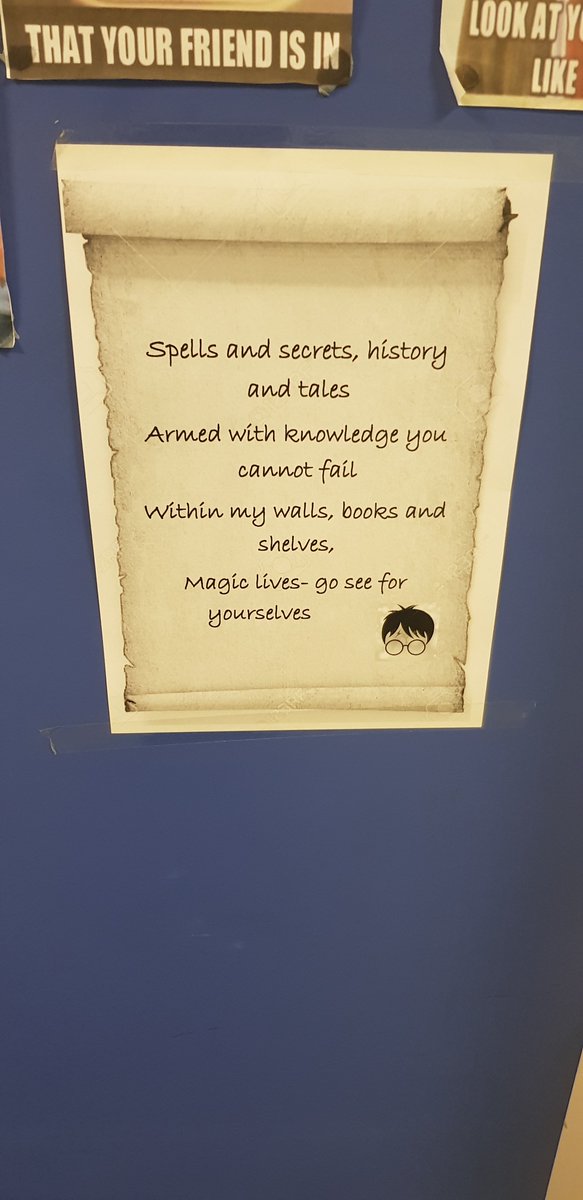 THAT YOUR FRIEND IS IN
LOOK AT
LIKE
Spells and secrets, history
and tales
Armed with knowledge you
cannot fail
Within my walls, books and
shelves,
Magic lives- go see for
yourselves